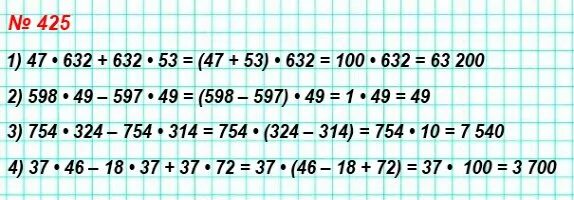 № 425
1) 47 • 632 + 632 • 53 = (47 + 53) • 632 = 100 • 632 = 63 200
2) 598 • 49 – 597 • 49 = (598 – 597) • 49 = 1 • 49 = 49
3) 754 • 324 – 754 • 314 = 754 • (324 – 314) = 754 • 10 = 7 540
4) 37 • 46 – 18 • 37 + 37 • 72 = 37 • (46 – 18 + 72) = 37 • 100 = 3 700